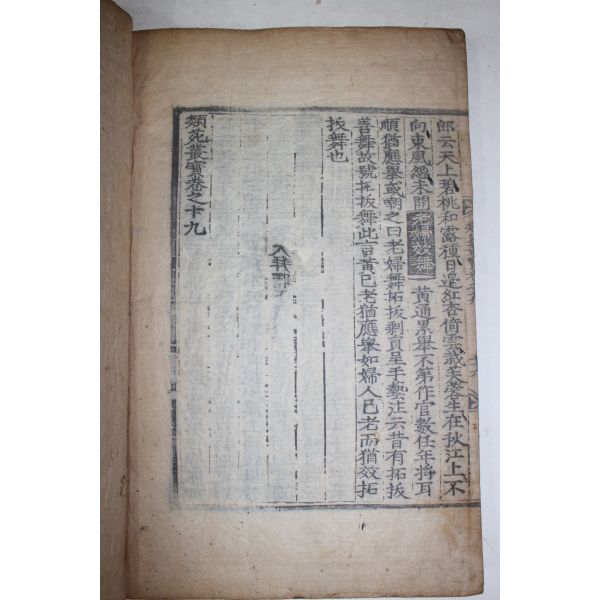 郎云天上碧桃和露種日邊紅杏倚雲栽芙蓉生在秋江上不
向東風怨未開 老婦效舞 黃通累舉不第作官數任年將耳
順猶應擧或嘲之曰老婦舞拓拔剩員呈手藝注云昔有拓拔
善舞故號拓拔舞此言黃已老猶應擧如婦人已老而猶效拓
拔舞也
類苑叢寶卷之十九